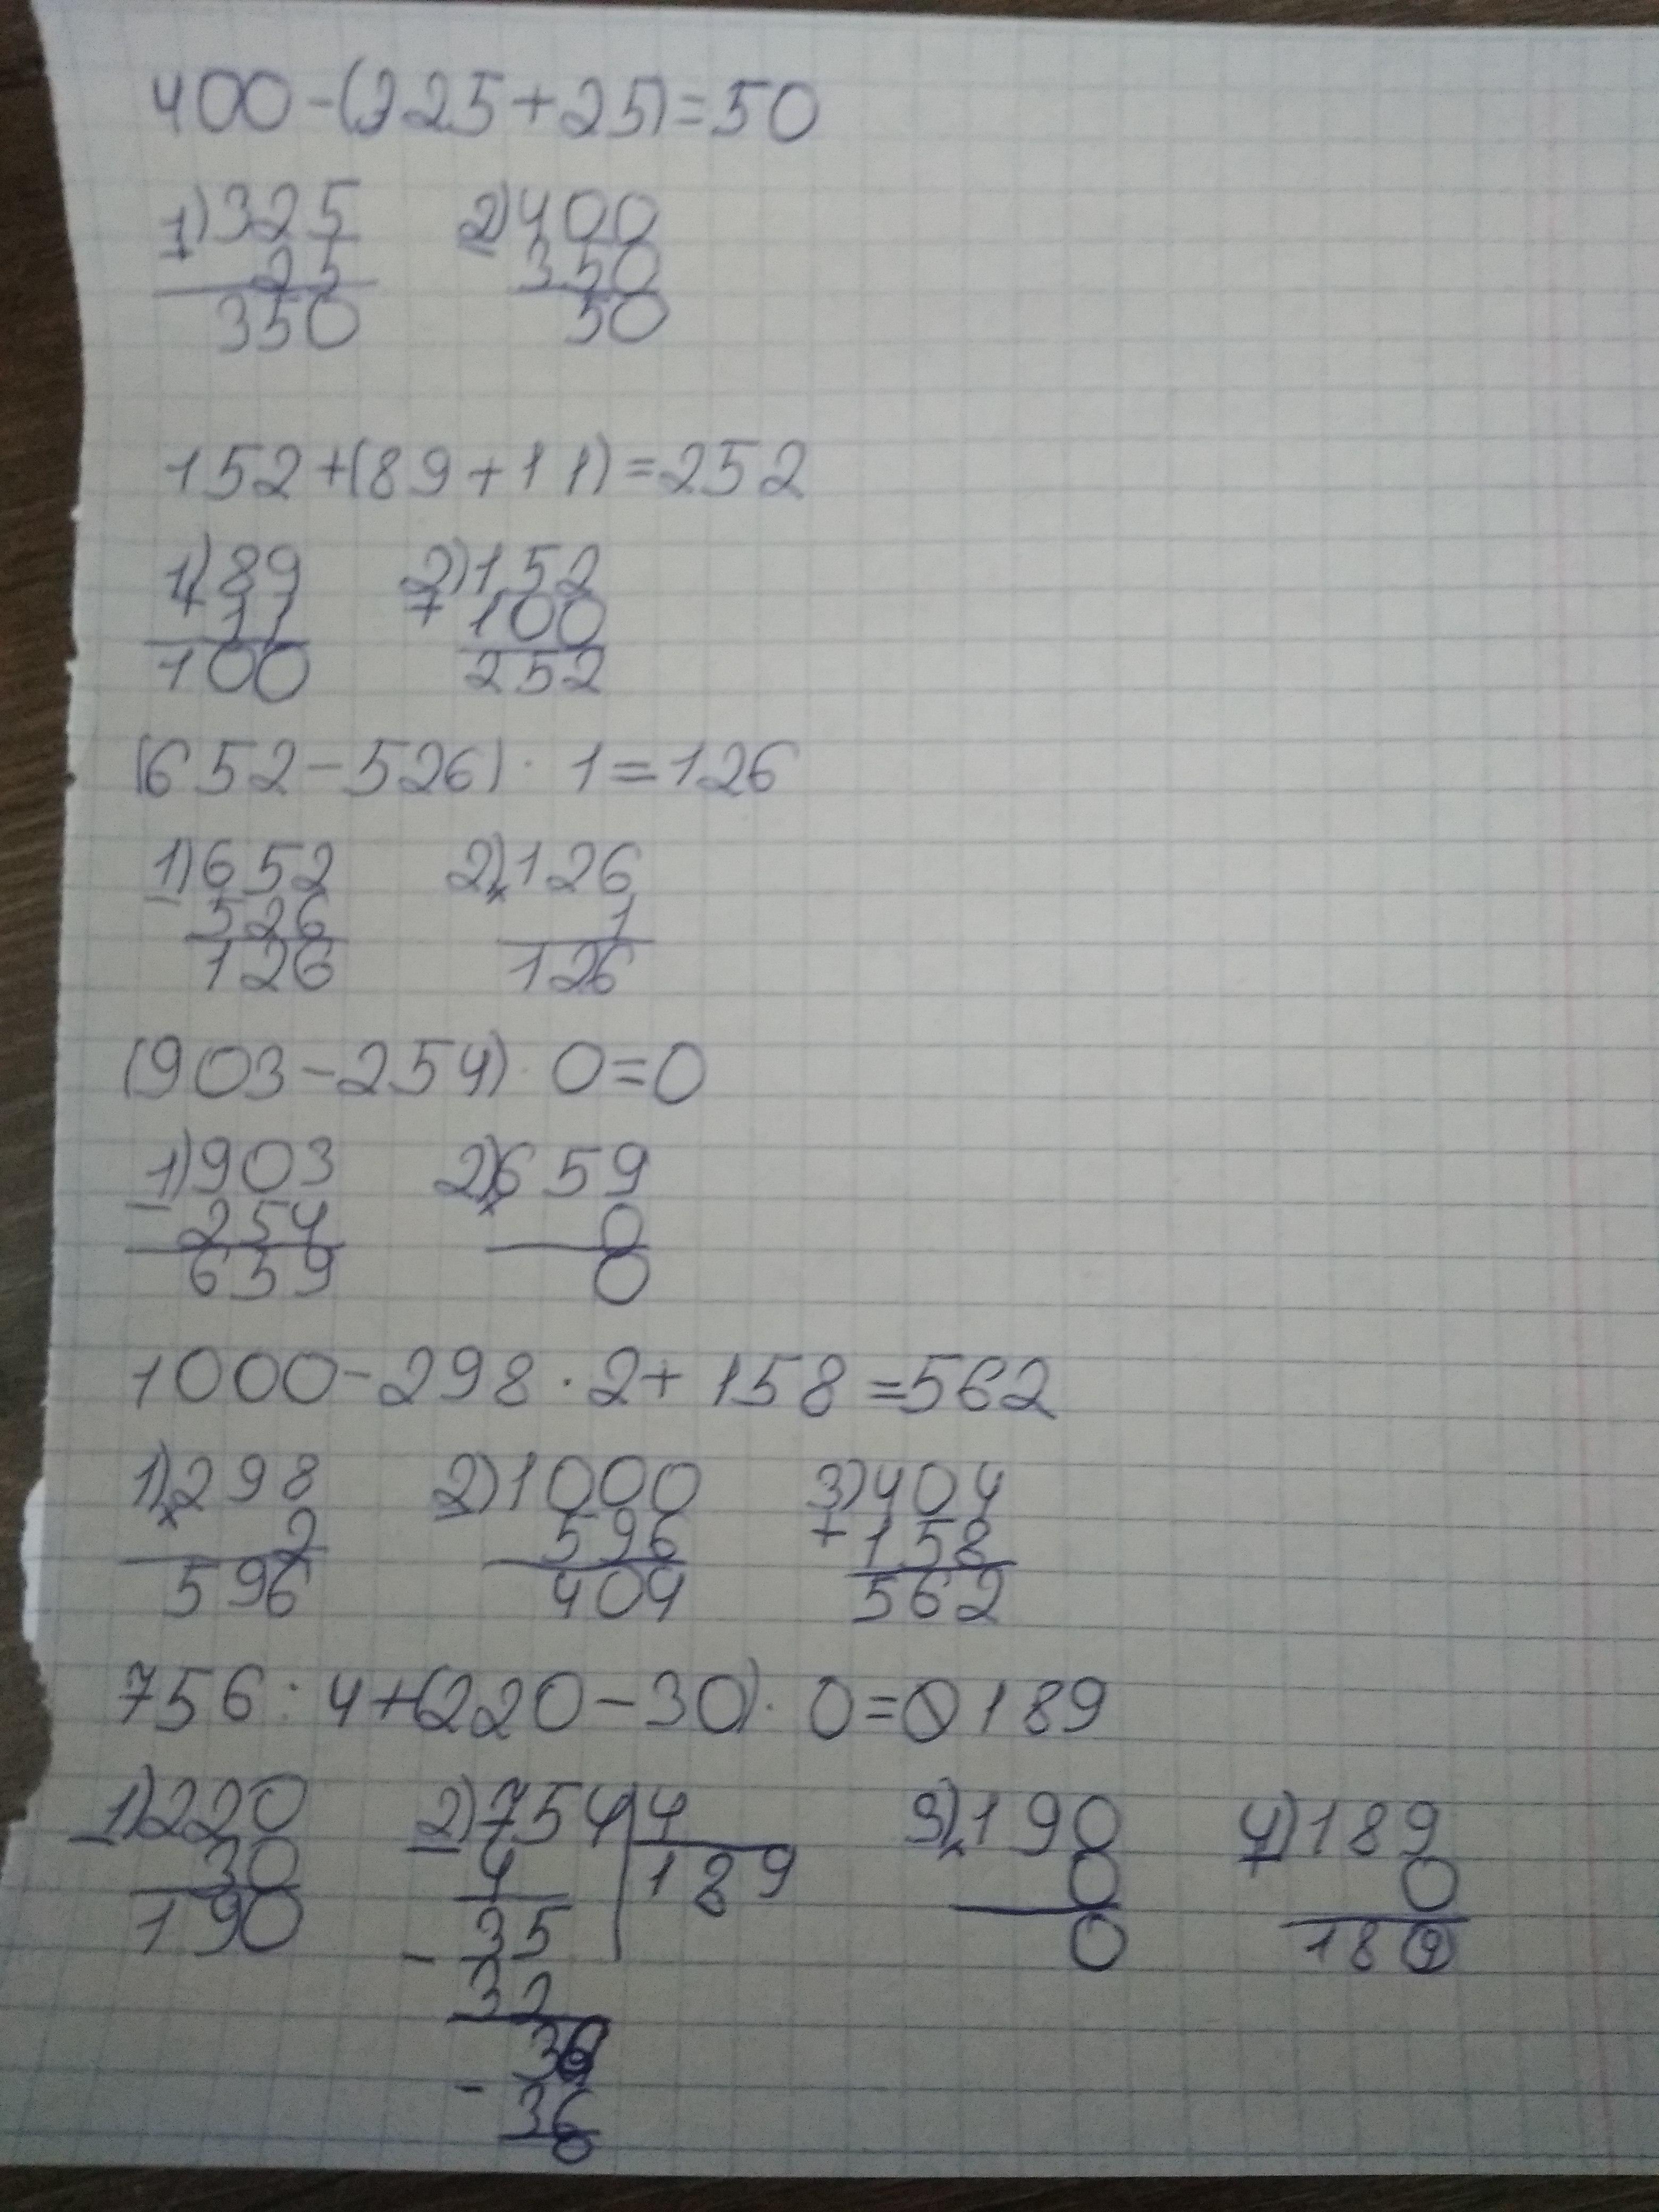 400-(325+25)=50
1)325 2)400
25 350
350 50
152+(89+11)=252
1)89 2)152
+ 11 + 100
100 252
(652-526)·1=126
1)652 2)126
- 526 × 1
126 126
(903-254)·0=0
1)903 2)659
- 254 × 0
659 0
1000-298·2+158=562
1)298 2)1000 3)404
× 2 - 596 + 158
596 404 562
756:4+(220-30)·0=0 189
1)220 2)754|4 3)190 4)189
- 30 - 4 189 × 0 + 0
190 - 35 0 189
32
- 36
36
0